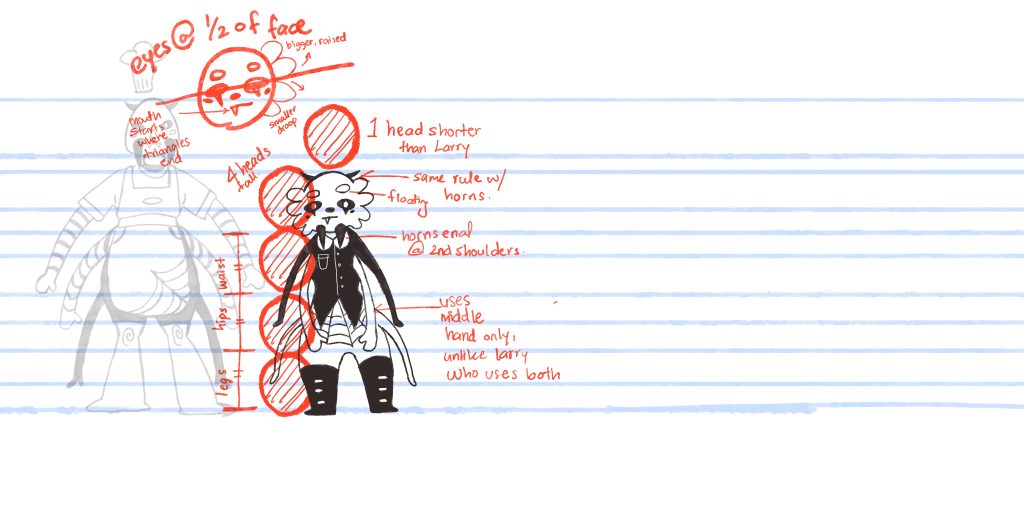 eyes @ 1/2 of face
bigger, raised
smaller
droop
mouth
starts
where
triangles
end
1 head shorter
than Larry
4 heads
tall.
same rule w/
horns.
floating
horns end
@ 2nd shoulders.
waist
hips
legs
uses
middle
hand only,
unlike larry
who uses both